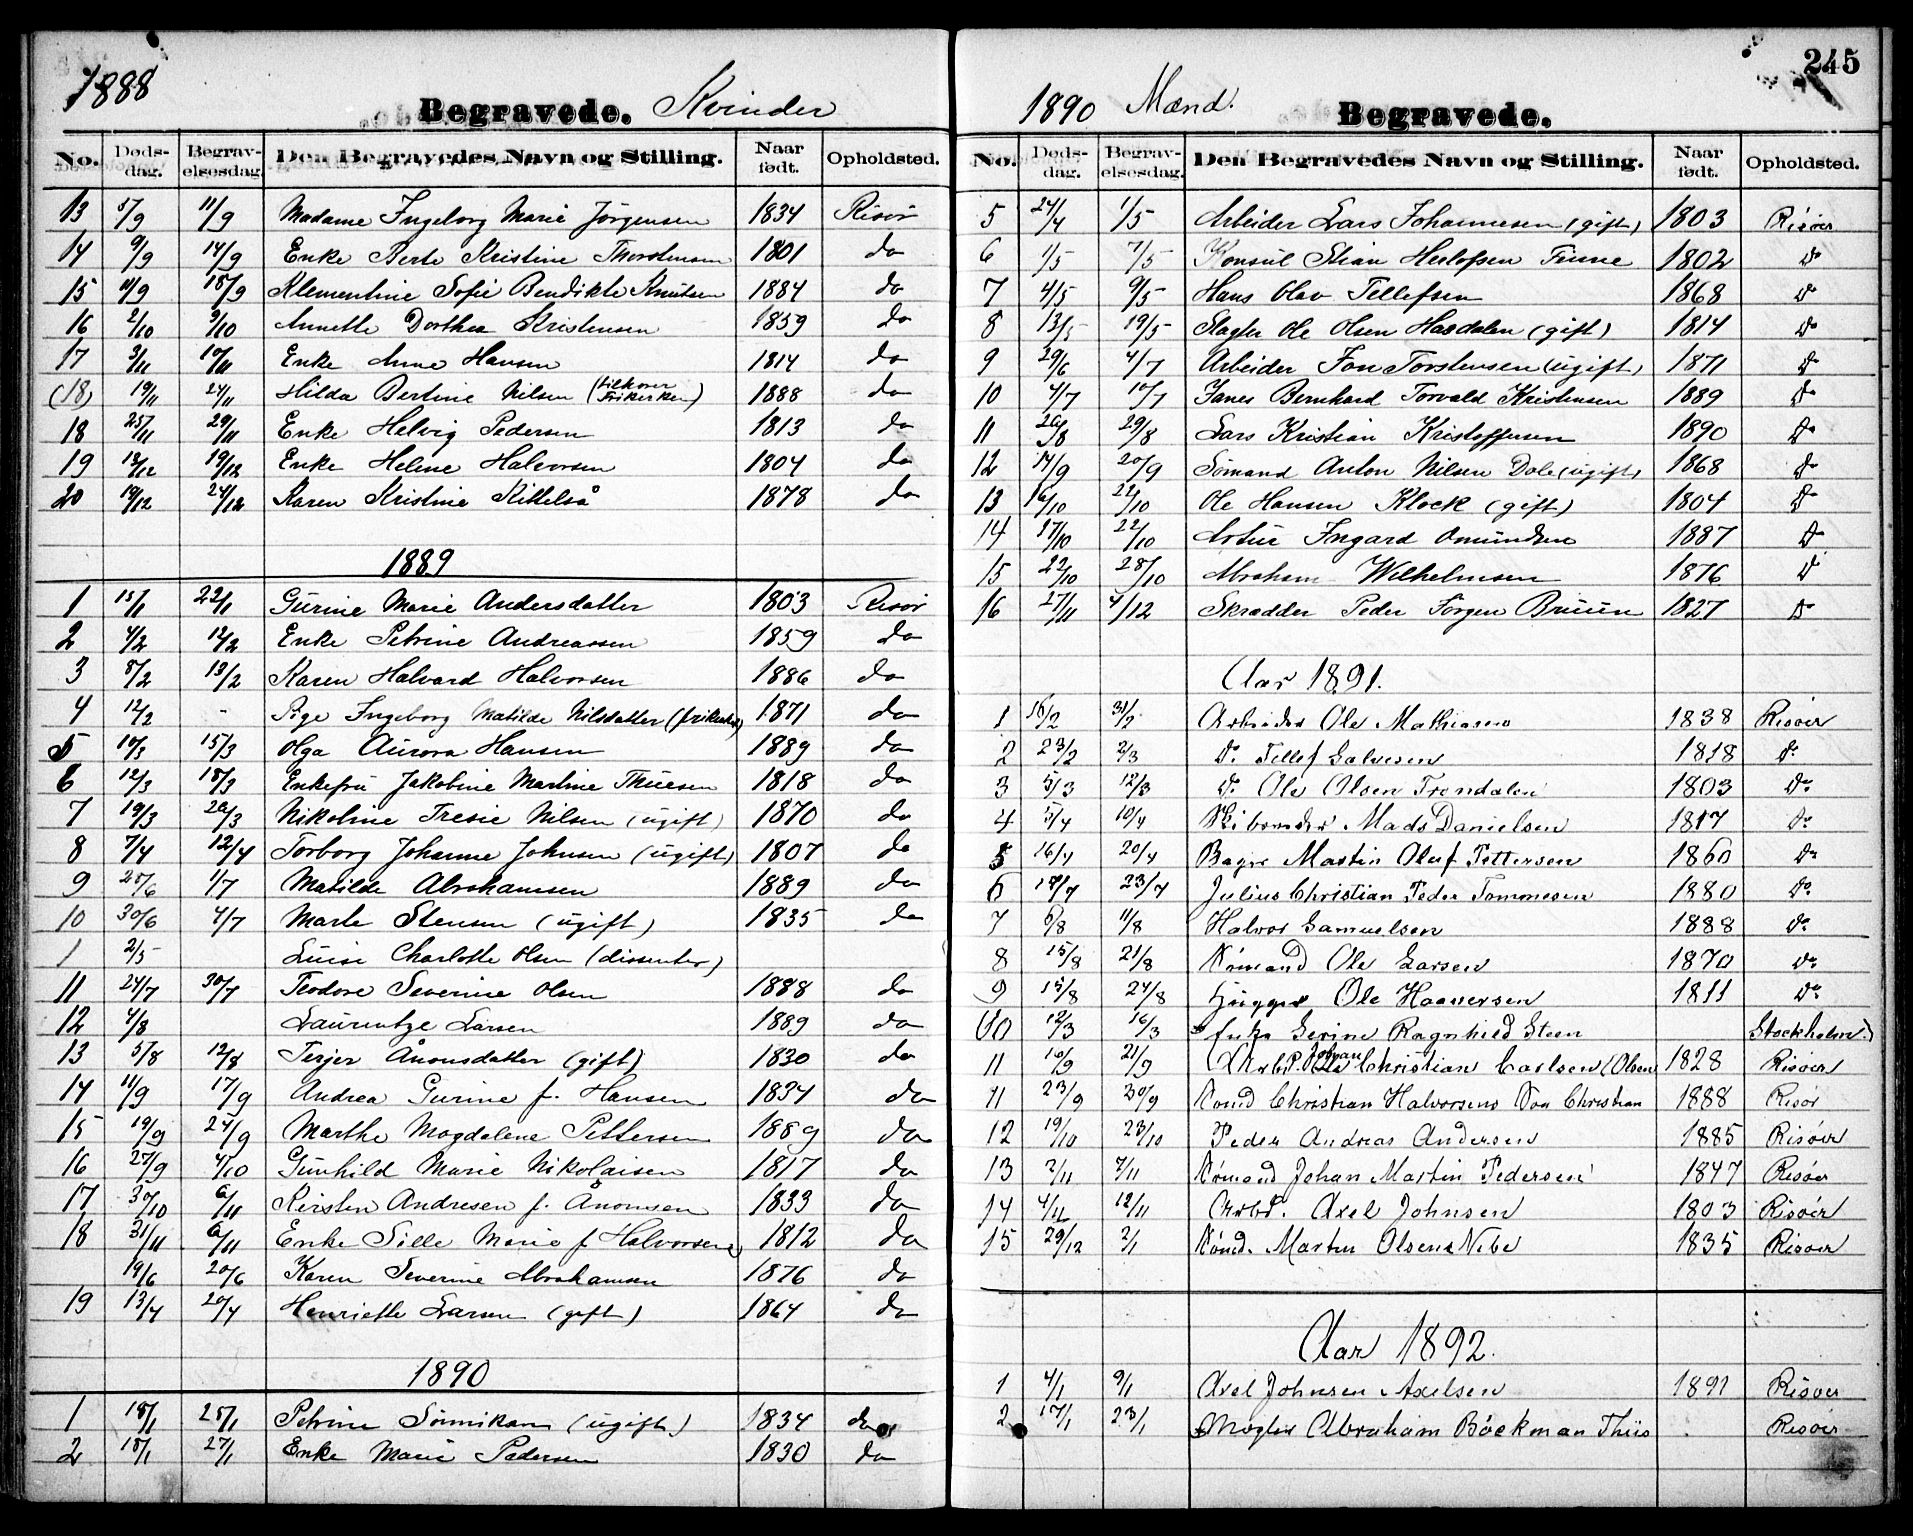 1888 Begravede. Kvinder
No. Døds-dag. Begrav-elsesdag. Den Begravedes Navn og Stilling. Naar født. Opholdsted.
13 5/9 11/9 Madame Ingeborg Marie Jörgensen 1834 Risör
14 9/9 14/9 Enke Berte Kristine Thorstensen 1801 do
15 11/9 18/9 Klementine Sofie Bendikte Knutsen 1884 do
16 2/10 9/10 Annette Dorthea Kristensen 1859 do
17 3/11 10/11 Enke Anne Hansen 1814 do
(18) 19/11 24/11 Hilda Bertine Nilsen ( Frikirken) 1888 do
18 25/11 29/11 Enke Helvig Pedersen 1813 do
19 13/12 19/12 Enke Helene Halvorsen 1804 do
20 19/12 24/12 Karen Kristine Kittelså 1878 do
1889
1 15/1 22/1 Gurine Marie Andersdatter 1803 Risör
2 4/2 12/2 Enke Petrine Andreassen 1859 do
3 8/2 13/2 Karen Halvard Halvorsen 1886 do
4 12/2 - Pige Ingeborg Matilde Nilsdatter 1871 do
5 10/3 15/3 Olga Aurora Hansen 1889 do
6 12/3 18/3 Enkefru Jakobine Martine Thuesen 1818 do
7 19/3 26/3 Nikoline Tresie Nilsen (ugift) 1870 do
8 7/4 12/4 Torborg Johanne Johnsen (ugift) 1807 do
9 25/6 1/7 Matilde Abrahamsen 1889 do
10 30/6 4/7 Marte Stensen (ugift) 1835 do
1 2/5 Luise Charlotte Olsen (dissenter)
11 24/7 30/7 Teodore Severine Olsen 1888 do
12 4/8 Laurentze Larsen 1889 do
13 5/8 12/8 Terjer Ånonsdatter (gift) 1830 do
14 11/9 17/9 Andrea Gurine f. Hansen 1834 do
15 19/9 24/9 Marthe Magdalene Pettersen 1889 do
16 27/9 4/10 Gunhild Marie Nikolaisen 1817 do
17 30/10 6/11 Kirsten Andresen f. Ånonsen 1833 do
18 31/11 6/11 Enke Sille Marie f Halvorsen 1812 do
19/6 20/6 Karen Severine Abrahamsen 1876 do
19 13/4 20/4 Henriette Larsen (gift) 1864 do
1890
1 18/1 25/1 Petrine (ugift) 1834 do
2 18/1 27/1 Enke Marie Pedersen 1830 do
245
1890 Mænd. Begravede.
No. Døds-dag. Begrav-elsesdag. Den Begravedes Navn og Stilling. Naar født. Opholdsted.
5 24/4 1/5 Arbeider Lars Johannesen (gift) 1803 Risöer
6 1/5 7/5 Konsul Stian Herlofsen Finne 1802 Do
7 4/5 9/5 Hans Olav Tellefsen 1868 Do
8 13/5 19/5 Slagter Ole Olsen Hasdalen (gift) 1814 Do
9 29/6 4/7 Arbeider Jon Torstensen (ugift) 1871 Do
10 4/7 10/7 Janes Bernhard Torvald Kristensen 1889 Do
11 26/8 29/8 Lars Kristian Kristoffersen 1890 Do
12 14/9 20/9 Sömand Anton Nilsen Dale (ugift) 1868 Do
13 16/10 22/10 Ole Hansen Klock (gift) 1804 Do
14 17/10 22/10 Artur Ingard Omundsen 1887 Do
15 22/10 28/10 Abraham Wilhelmsen 1876 Do
16 27/11 4/12 Skrædder Peder Jörgen Bruun 1827 Do
Aar 1891.
1 16/2 Arbeider Ole Mathiasen 1838 Risöer
2 23/2 2/3 Do Tellef Salvesen 1818 Do
3 5/3 12/3 Do Ole Olsen Trondalen 1803 Do
4 5/4 10/4 Mads Danielsen 1817 Do
5 16/4 20/4 Bager Martin Oluf Pettersen 1860 Do
6 18/7 23/7 Julius Christian Peder Tommesen 1880 Do
7 6/8 11/8 Halvor Samuelsen 1888 Do
8 15/8 21/8 Sömand Ole Larsen 1870 Do
9 15/8 24/8 Ole Haaversen 1811 Do
(10 12/3 16/3 Serine Ragnhild Steen Stockholm)
11 16/9 21/9 Johan Christian Carlsen (Olsen 1828 Risöer
11 23/9 30/9 Sömd Christian Halvorsens Sön Christian 1888 Risör
12 19/10 23/10 Peder Andreas Andersen 1885 Risöer
13 2/11 7/11 Sömand Johan Martin Pedersen 1847 Risöer
14 4/11 12/11 Arbd. Axel Johnsen 1803 Risöer
15 29/12 2/1 Sömd. Martin Olsen Vibe 1835 Risöer
Aar 1892.
1 4/1 9/1 Axel Johnsen Axelsen 1891 Risöer
2 17/1 23/1 Mægler Abraham Böckman Thiis Risöer